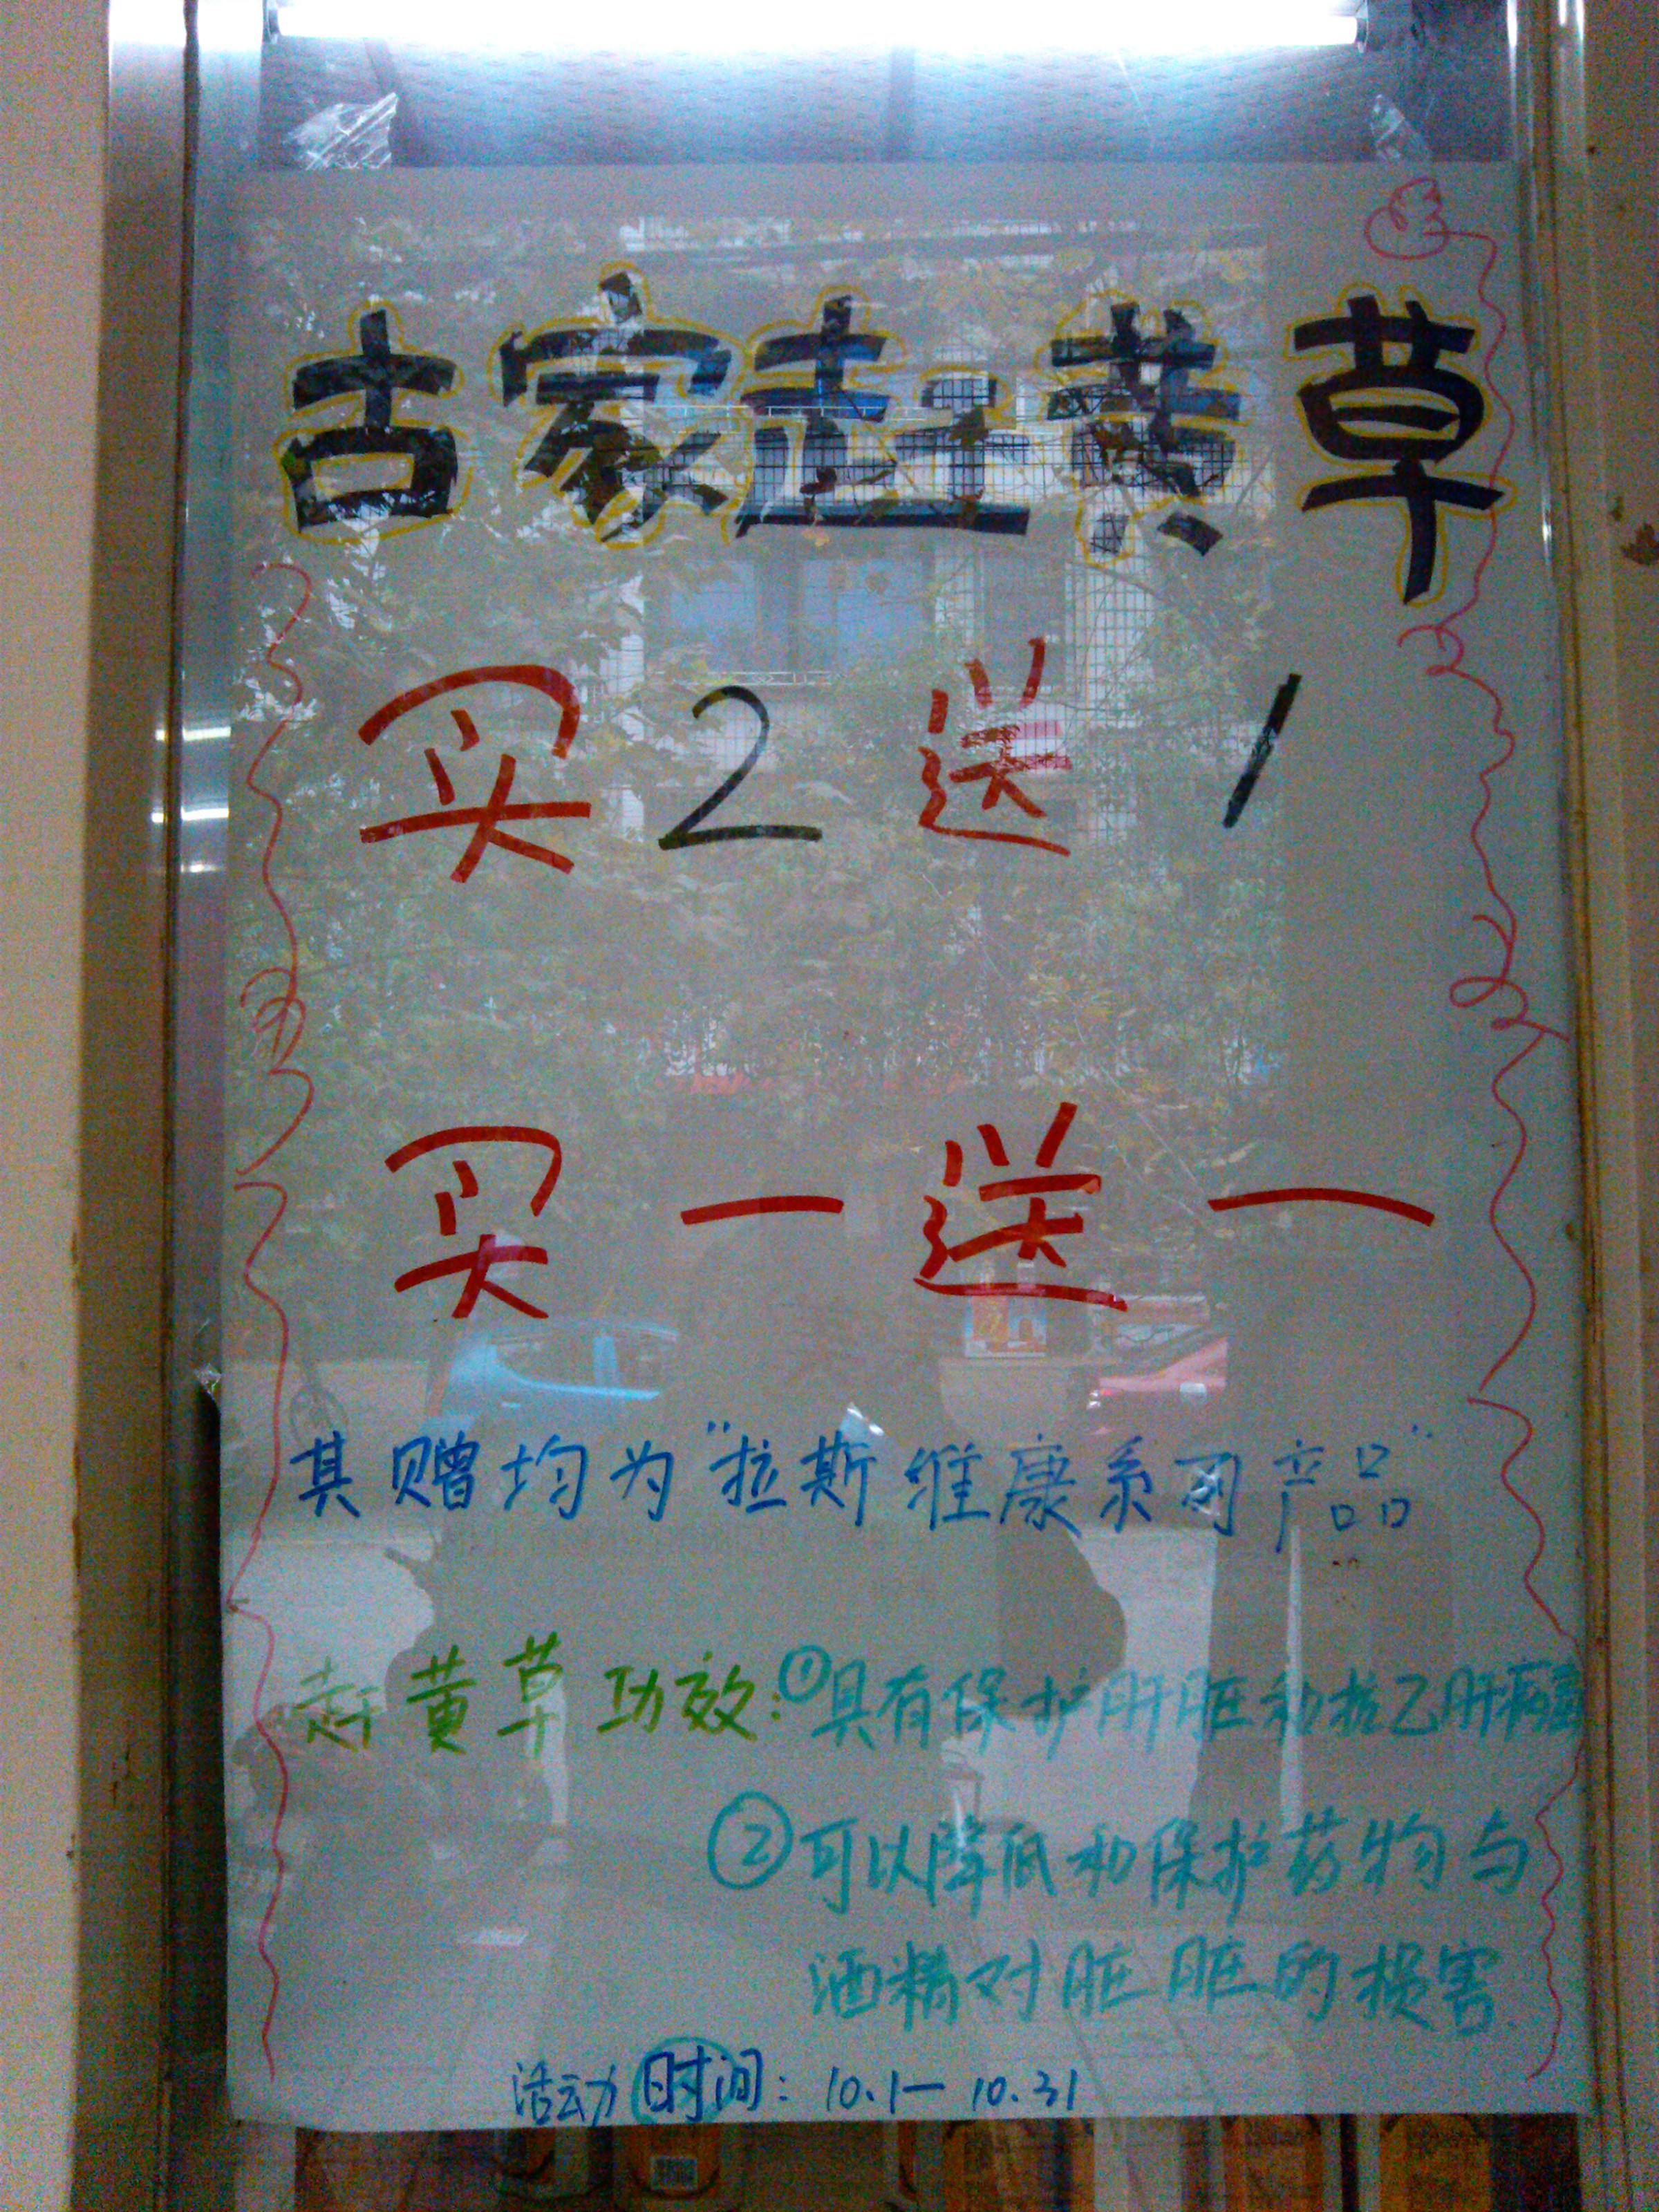 古家赶黄草
买2送1
买一送一
其赠均为"拉斯维康系列产品"
赶黄草功效:①具有保护肝脏和抗乙肝病毒
②可以降低和保护药物与
酒精对脏脏的损害.
活动时间: 10.1—10.31